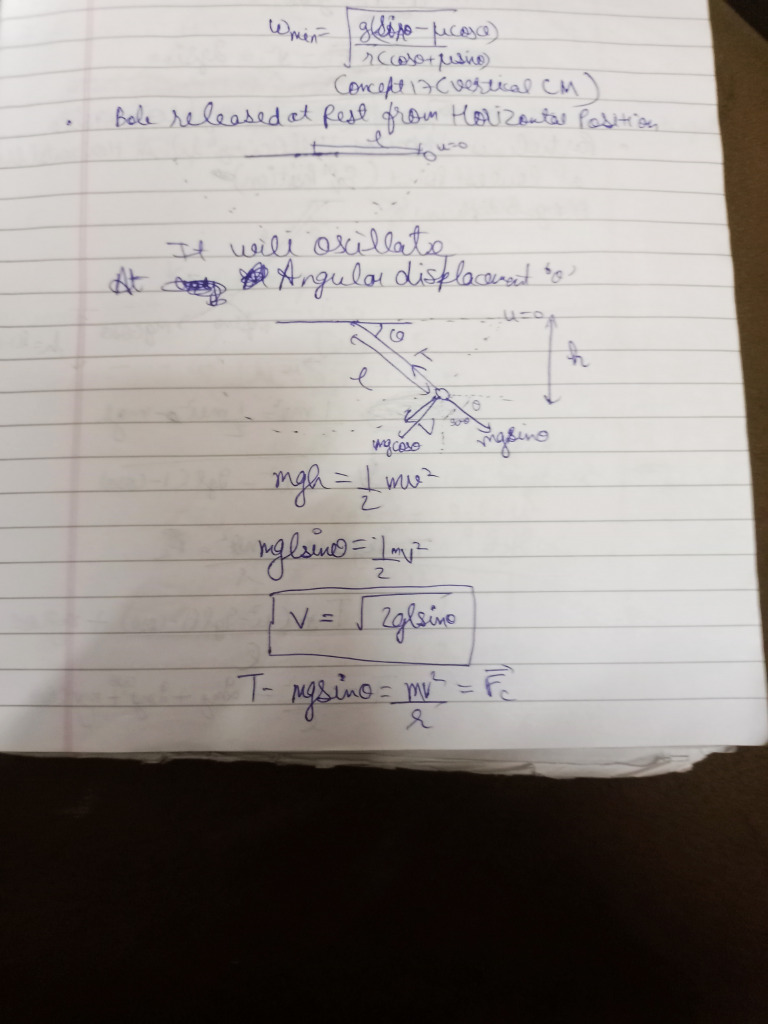 ωmin= √g(sinθ-μcosθ)
r(cosθ+μsinθ)
Concept 17 (Vertical CM)
. Bob released at Rest from Horizontal Position
l u=0
It will oscillate
At Angular displacement 'θ'
u=0
θ
T
l h
θ
mgcosθ mgsinθ
mgh = 1/2 mv²
mglsinθ = 1/2 mv²
V = √2glsinθ
T- mgsinθ = mv²/r = Fc